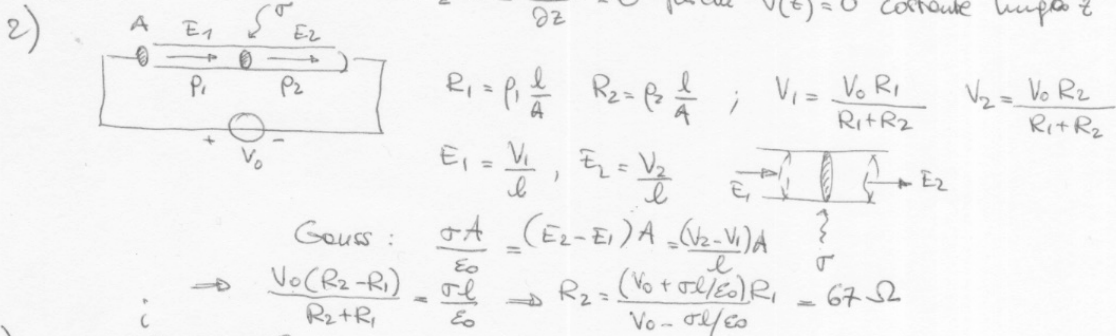 ∂z = 0 V(z) = 0 costante lungo z
2)
A E1 σ E2
ρ1 ρ2
+ V0 −
R1 = ρ1 l/A R2 = ρ2 l/A ; V1 = V0 R1/(R1+R2) V2 = V0 R2/(R1+R2)
E1 = V1/l , E2 = V2/l
E1 E2
σ
Gauss : σA/ε0 = (E2−E1)A = (V2−V1)A/l
⇒ V0(R2−R1)/(R2+R1) = σl/ε0 ⇒ R2 = (V0 + σl/ε0)R1/(V0 − σl/ε0) = 67 Ω
i